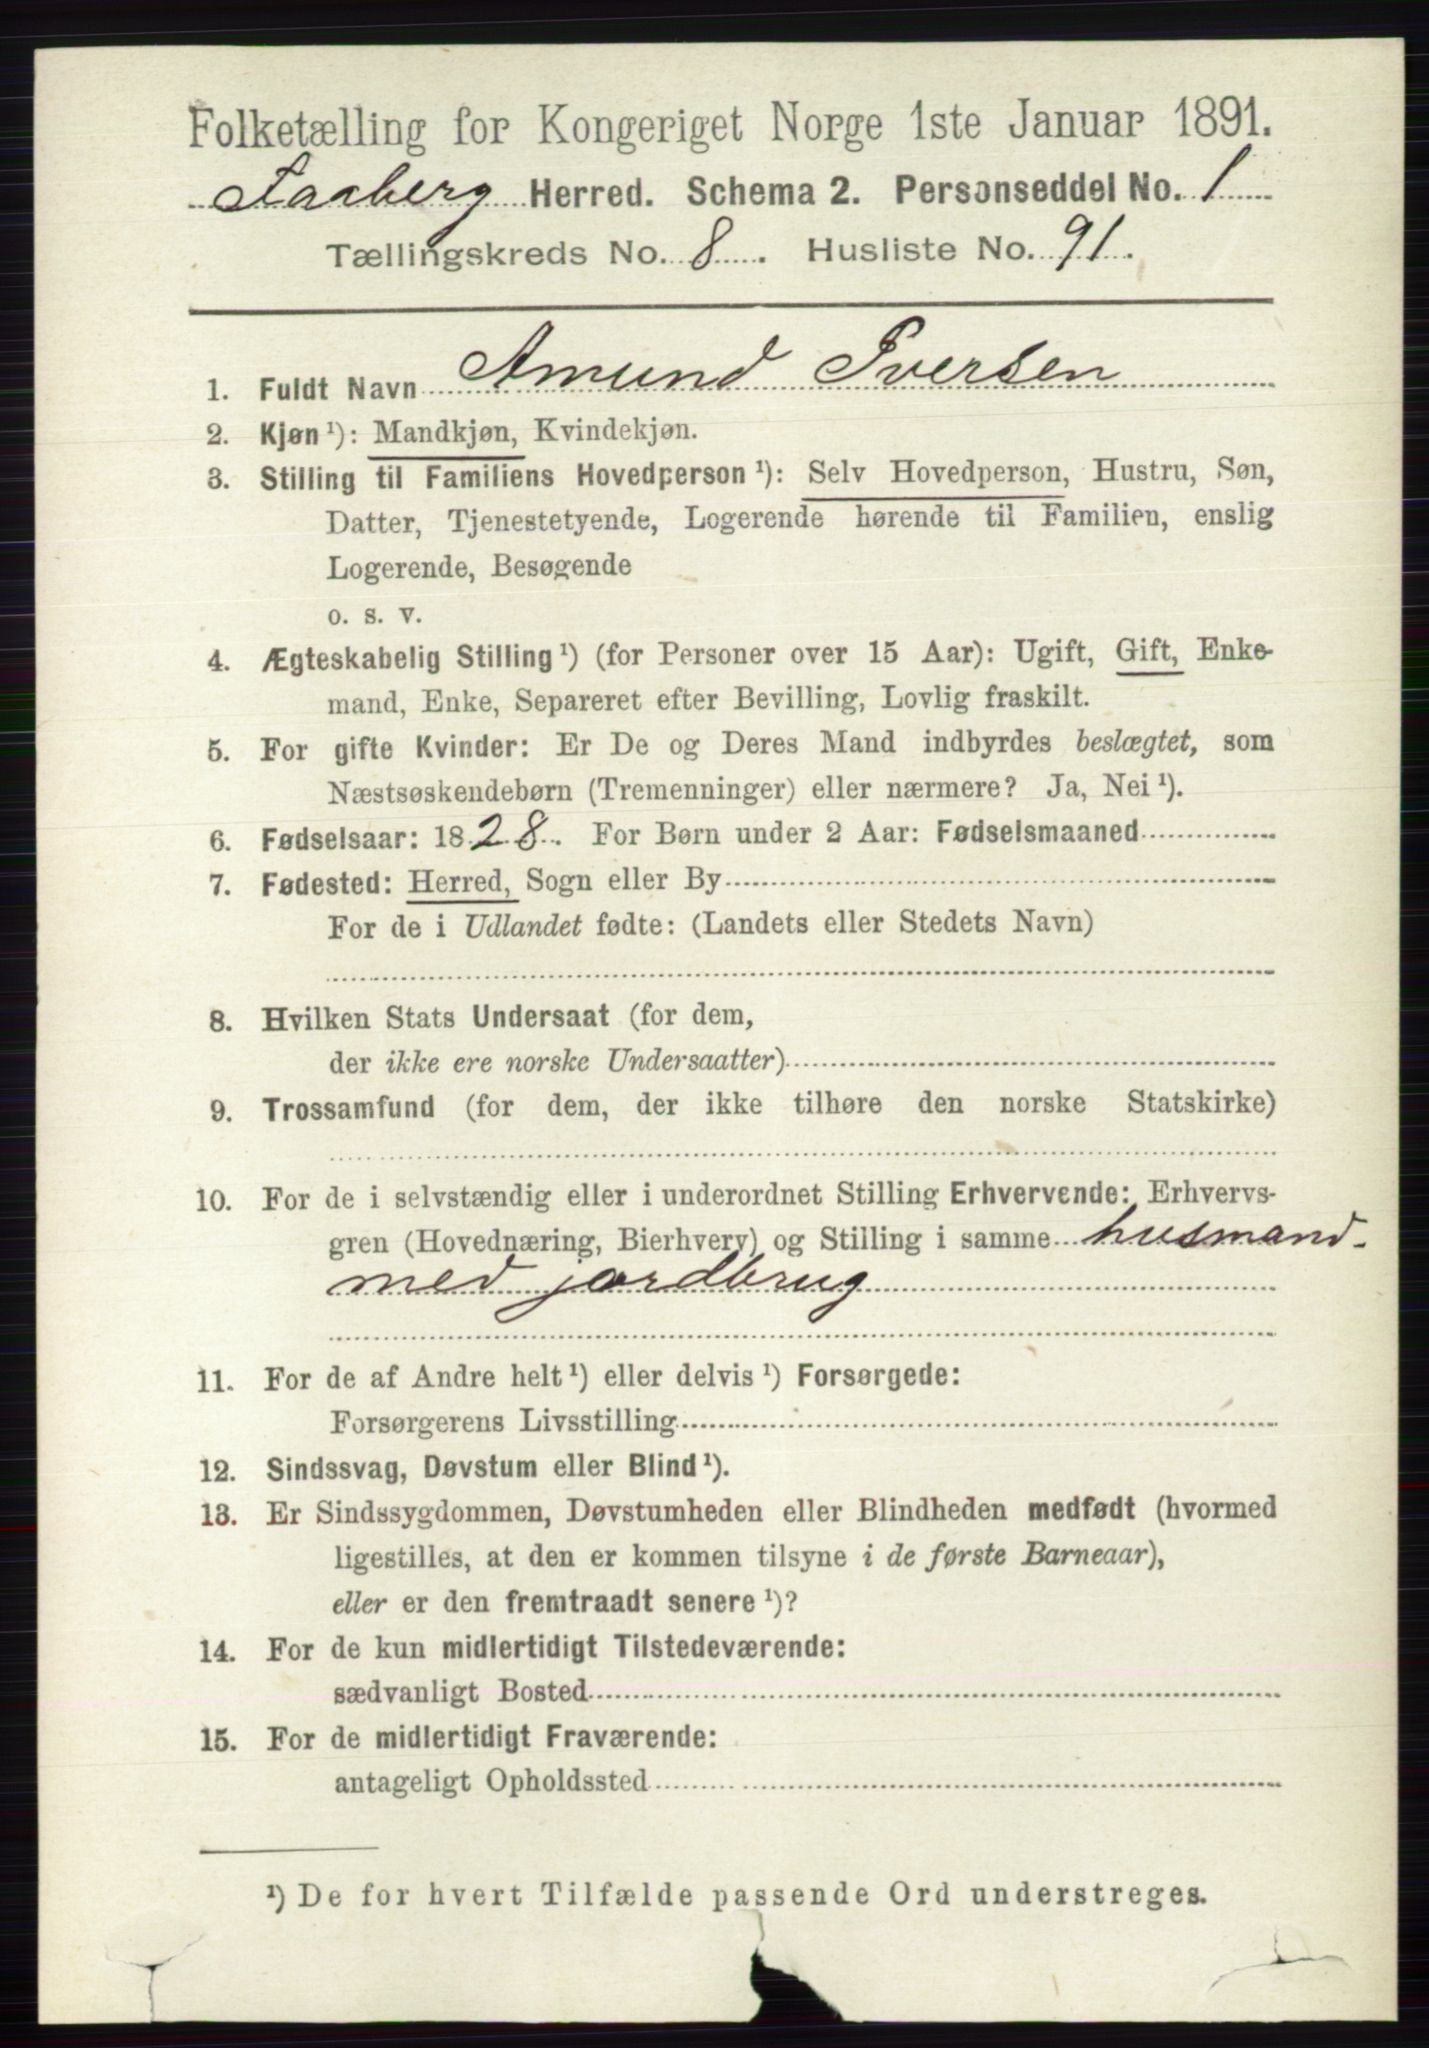 Folketælling for Kongeriget Norge 1ste Januar 1891.
Faaberg Herred. Schema 2. Personseddel No. 1
Tællingskreds No. 8. Husliste No. 91.
1. Fuldt Navn Amund Iversen
2. Kjøn ¹): Mandkjøn, Kvindekjøn.
3. Stilling til Familiens Hovedperson ¹): Selv Hovedperson, Hustru, Søn,
Datter, Tjenestetyende, Logerende hørende til Familien, enslig
Logerende, Besøgende
o. s. v.
4. Ægteskabelig Stilling ¹) (for Personer over 15 Aar): Ugift, Gift, Enke-
mand, Enke, Separeret efter Bevilling, Lovlig fraskilt.
5. For gifte Kvinder: Er De og Deres Mand indbyrdes beslægtet, som
Næstsøskendebørn (Tremenninger) eller nærmere? Ja, Nei ¹).
6. Fødselsaar: 1828. For Børn under 2 Aar: Fødselsmaaned
7. Fødested: Herred, Sogn eller By
For de i Udlandet fødte: (Landets eller Stedets Navn)
8. Hvilken Stats Undersaat (for dem,
der ikke ere norske Undersaatter)
9. Trossamfund (for dem, der ikke tilhøre den norske Statskirke)
10. For de i selvstændig eller i underordnet Stilling Erhvervende: Erhvervs-
gren (Hovednæring, Bierhverv) og Stilling i samme husmand
med jordbrug
11. For de af Andre helt ¹) eller delvis ¹) Forsørgede:
Forsørgerens Livsstilling
12. Sindssvag, Døvstum eller Blind ¹).
13. Er Sindssygdommen, Døvstumheden eller Blindheden medfødt (hvormed
ligestilles, at den er kommen tilsyne i de første Barneaar),
eller er den fremtraadt senere ¹)?
14. For de kun midlertidigt Tilstedeværende:
sædvanligt Bosted
15. For de midlertidigt Fraværende:
antageligt Opholdssted
¹) De for hvert Tilfælde passende Ord understreges.